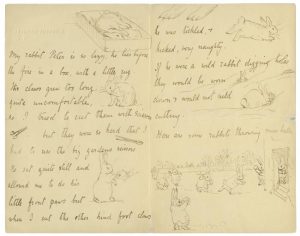 My rabbit Peter is so lazy, he lies before
the fire in a box, with a little rug
His claws grew too long,
quite uncomfortable,
so I tried to cut them with scissors
but they were so hard that I
had to use the big garden scissors
He sat quite still and
allowed me to do his
little front paws but
when I cut the other hind foot claws
he was tickled, &
kicked, very naughty.
If he were a wild rabbit digging holes
they would be worn
down & would not need
cutting.
Here are some rabbits throwing snow balls